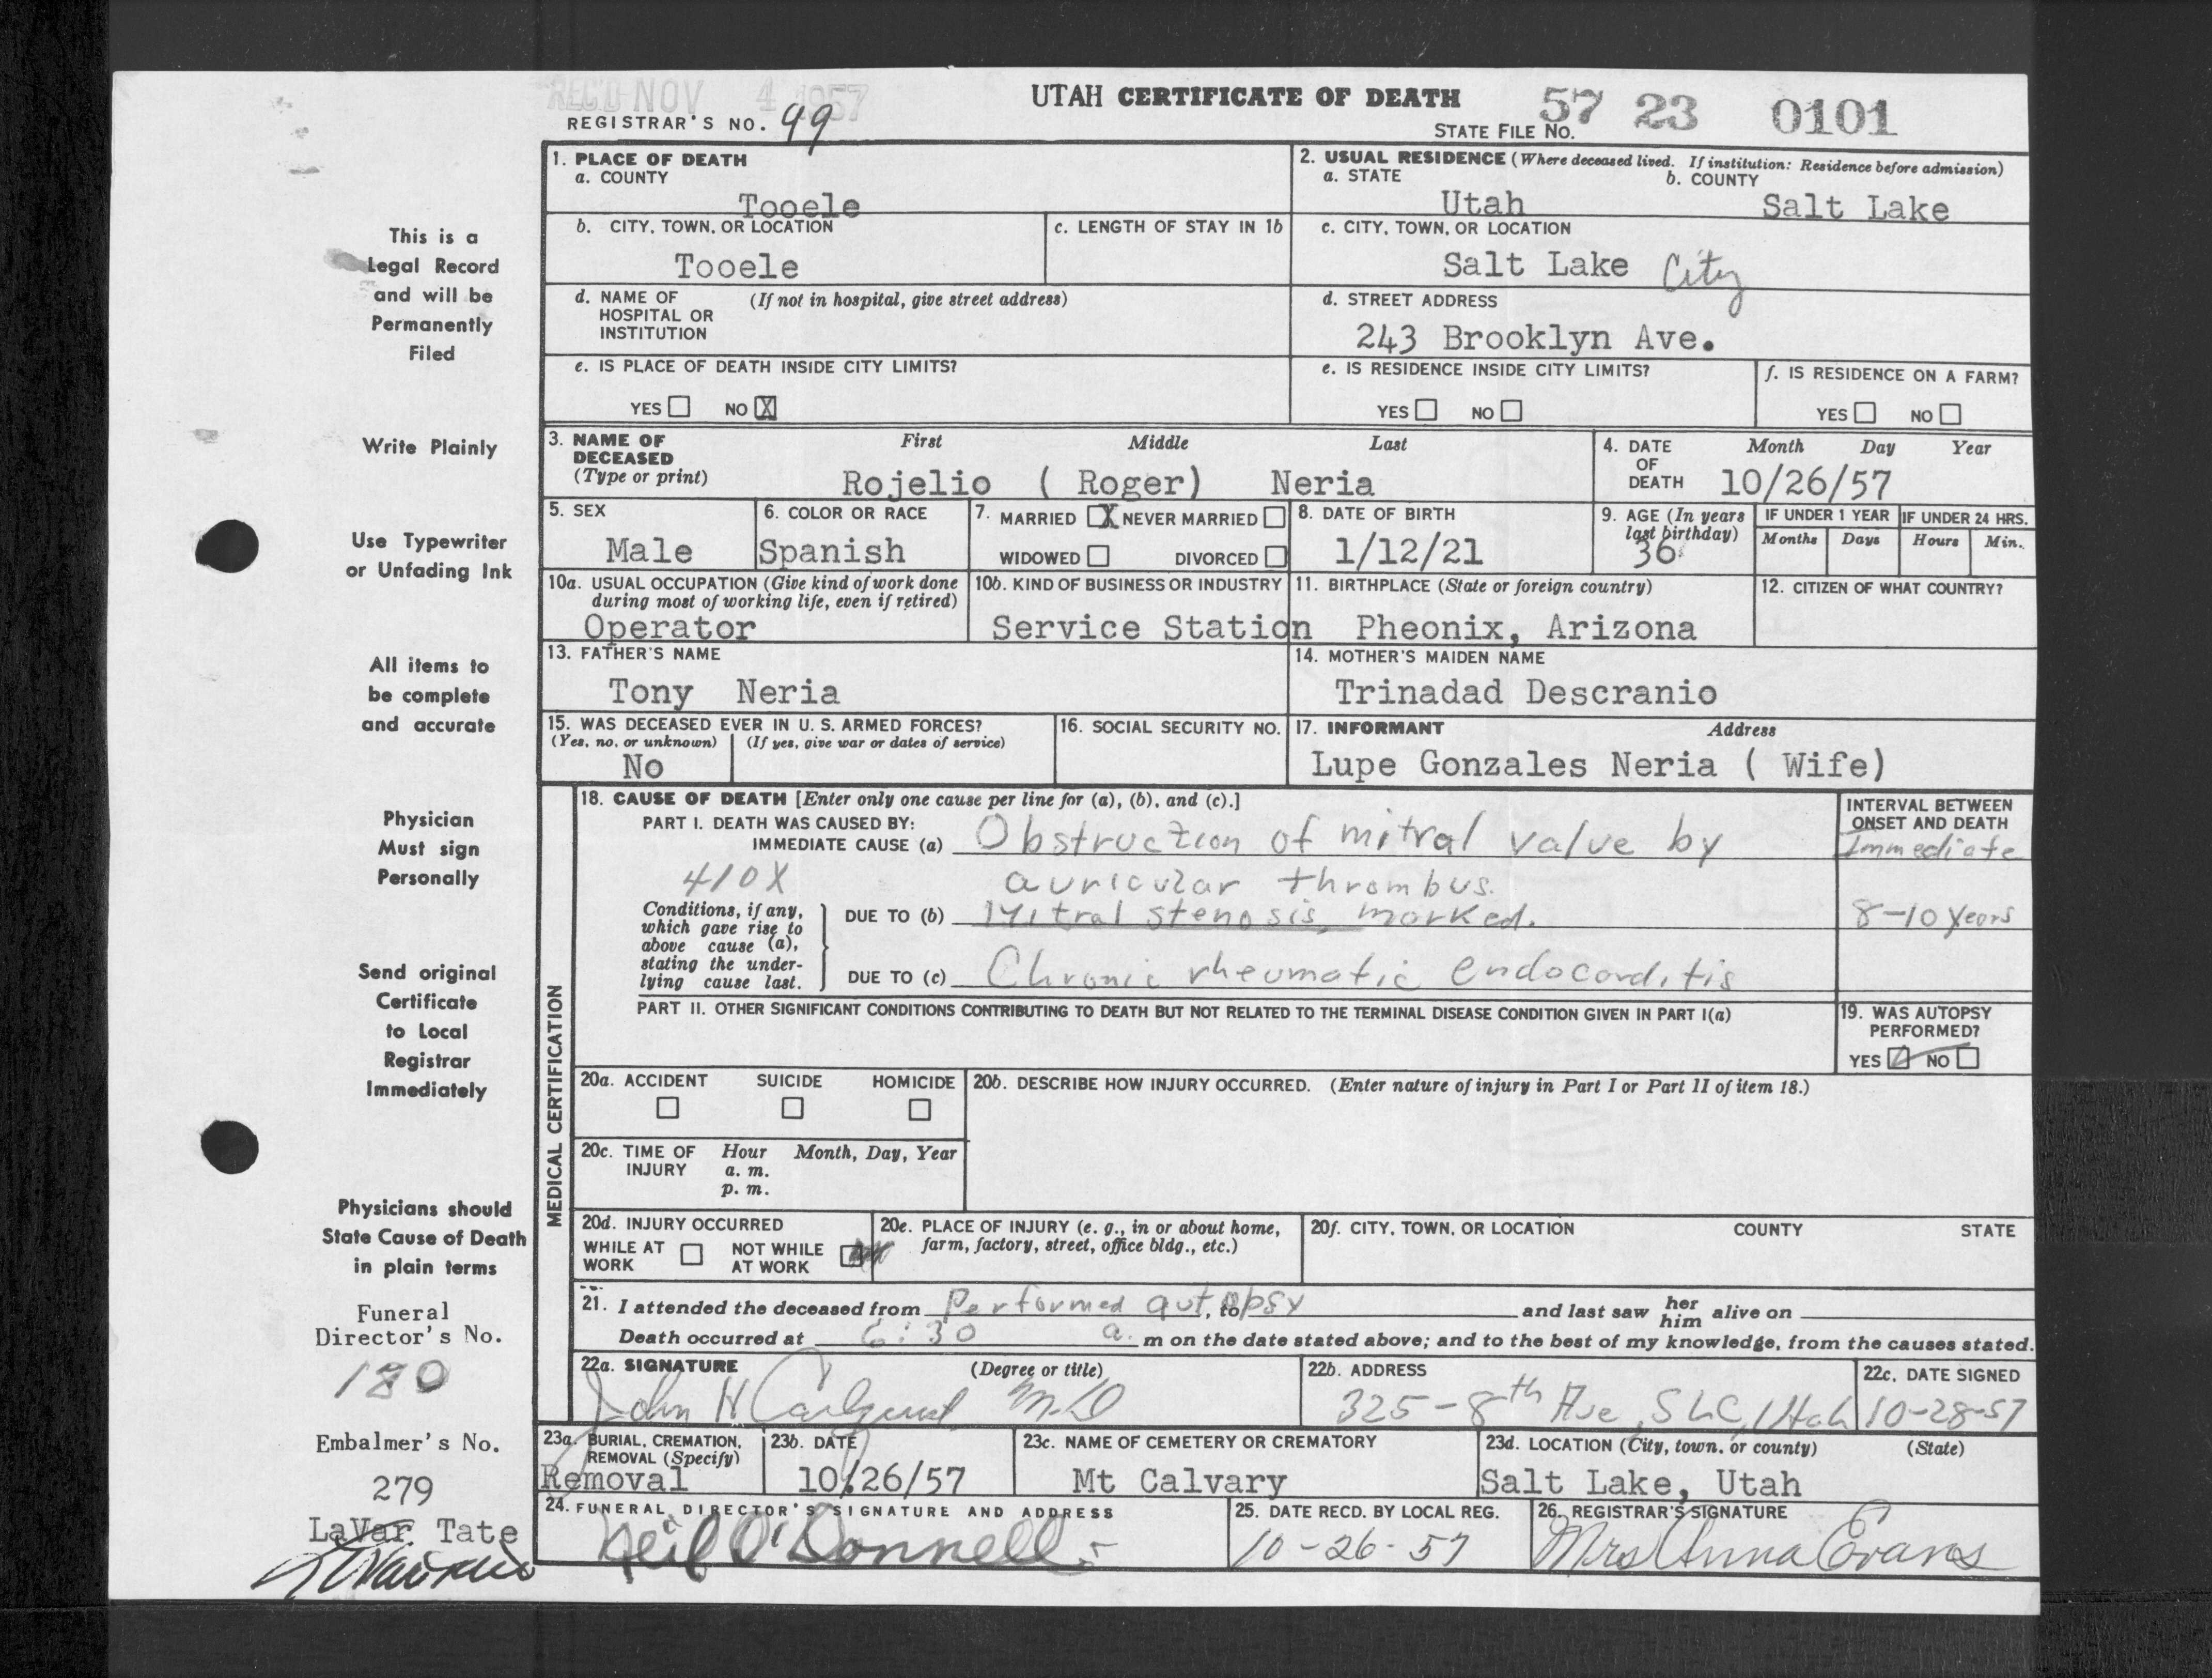 REC'D NOV 4 1957
UTAH CERTIFICATE OF DEATH
REGISTRAR'S NO. 49
STATE FILE NO. 57 23 0101
This is a
Legal Record
and will be
Permanently
Filed
Write Plainly
Use Typewriter
or Unfading Ink
All items to
be complete
and accurate
Physician
Must sign
Personally
Send original
Certificate
to Local
Registrar
Immediately
Physicians should
State Cause of Death
in plain terms
Funeral
Director's No.
180
Embalmer's No.
279
LaVar Tate
1. PLACE OF DEATH
a. COUNTY
Tooele
2. USUAL RESIDENCE (Where deceased lived. If institution: Residence before admission)
a. STATE b. COUNTY
Utah Salt Lake
b. CITY, TOWN, OR LOCATION
Tooele
c. LENGTH OF STAY IN 1b
c. CITY, TOWN, OR LOCATION
Salt Lake City
d. NAME OF (If not in hospital, give street address)
HOSPITAL OR
INSTITUTION
d. STREET ADDRESS
243 Brooklyn Ave.
e. IS PLACE OF DEATH INSIDE CITY LIMITS?
YES NO X
e. IS RESIDENCE INSIDE CITY LIMITS?
YES NO
f. IS RESIDENCE ON A FARM?
YES NO
3. NAME OF First Middle Last
DECEASED
(Type or print)
Rojelio ( Roger) Neria
4. DATE Month Day Year
OF
DEATH 10/26/57
5. SEX
Male
6. COLOR OR RACE
Spanish
7. MARRIED X NEVER MARRIED
WIDOWED DIVORCED
8. DATE OF BIRTH
1/12/21
9. AGE (In years
last birthday)
36
IF UNDER 1 YEAR
Months Days
IF UNDER 24 HRS.
Hours Min.
10a. USUAL OCCUPATION (Give kind of work done
during most of working life, even if retired)
Operator
10b. KIND OF BUSINESS OR INDUSTRY
Service Station
11. BIRTHPLACE (State or foreign country)
Pheonix, Arizona
12. CITIZEN OF WHAT COUNTRY?
13. FATHER'S NAME
Tony Neria
14. MOTHER'S MAIDEN NAME
Trinadad Descranio
15. WAS DECEASED EVER IN U. S. ARMED FORCES?
(Yes, no, or unknown) (If yes, give war or dates of service)
No
16. SOCIAL SECURITY NO.
17. INFORMANT Address
Lupe Gonzales Neria ( Wife)
MEDICAL CERTIFICATION
18. CAUSE OF DEATH [Enter only one cause per line for (a), (b), and (c).]
PART I. DEATH WAS CAUSED BY:
IMMEDIATE CAUSE (a) Obstruction of mitral valve by
410X auricular thrombus.
Conditions, if any,
which gave rise to
above cause (a),
stating the under-
lying cause last.
DUE TO (b) Mitral stenosis, marked.
DUE TO (c) Chronic rheumatic endocarditis
INTERVAL BETWEEN
ONSET AND DEATH
Immediate
8-10 years
PART II. OTHER SIGNIFICANT CONDITIONS CONTRIBUTING TO DEATH BUT NOT RELATED TO THE TERMINAL DISEASE CONDITION GIVEN IN PART I(a)
19. WAS AUTOPSY
PERFORMED?
YES NO
20a. ACCIDENT SUICIDE HOMICIDE
20b. DESCRIBE HOW INJURY OCCURRED. (Enter nature of injury in Part I or Part II of item 18.)
20c. TIME OF Hour Month, Day, Year
INJURY a. m.
p. m.
20d. INJURY OCCURRED
WHILE AT NOT WHILE
WORK AT WORK
20e. PLACE OF INJURY (e. g., in or about home,
farm, factory, street, office bldg., etc.)
20f. CITY, TOWN, OR LOCATION COUNTY STATE
21. I attended the deceased from Performed autopsy, to and last saw her him alive on
Death occurred at 6:30 a. m on the date stated above; and to the best of my knowledge, from the causes stated.
22a. SIGNATURE (Degree or title)
John H Carlquist M.D
22b. ADDRESS
325-8th Ave, SLC, Utah
22c. DATE SIGNED
10-28-57
23a. BURIAL, CREMATION,
REMOVAL (Specify)
Removal
23b. DATE
10/26/57
23c. NAME OF CEMETERY OR CREMATORY
Mt Calvary
23d. LOCATION (City, town, or county) (State)
Salt Lake, Utah
24. FUNERAL DIRECTOR'S SIGNATURE AND ADDRESS
Neil O'Donnell
25. DATE RECD. BY LOCAL REG.
10-26-57
26. REGISTRAR'S SIGNATURE
Mrs Anna Evans